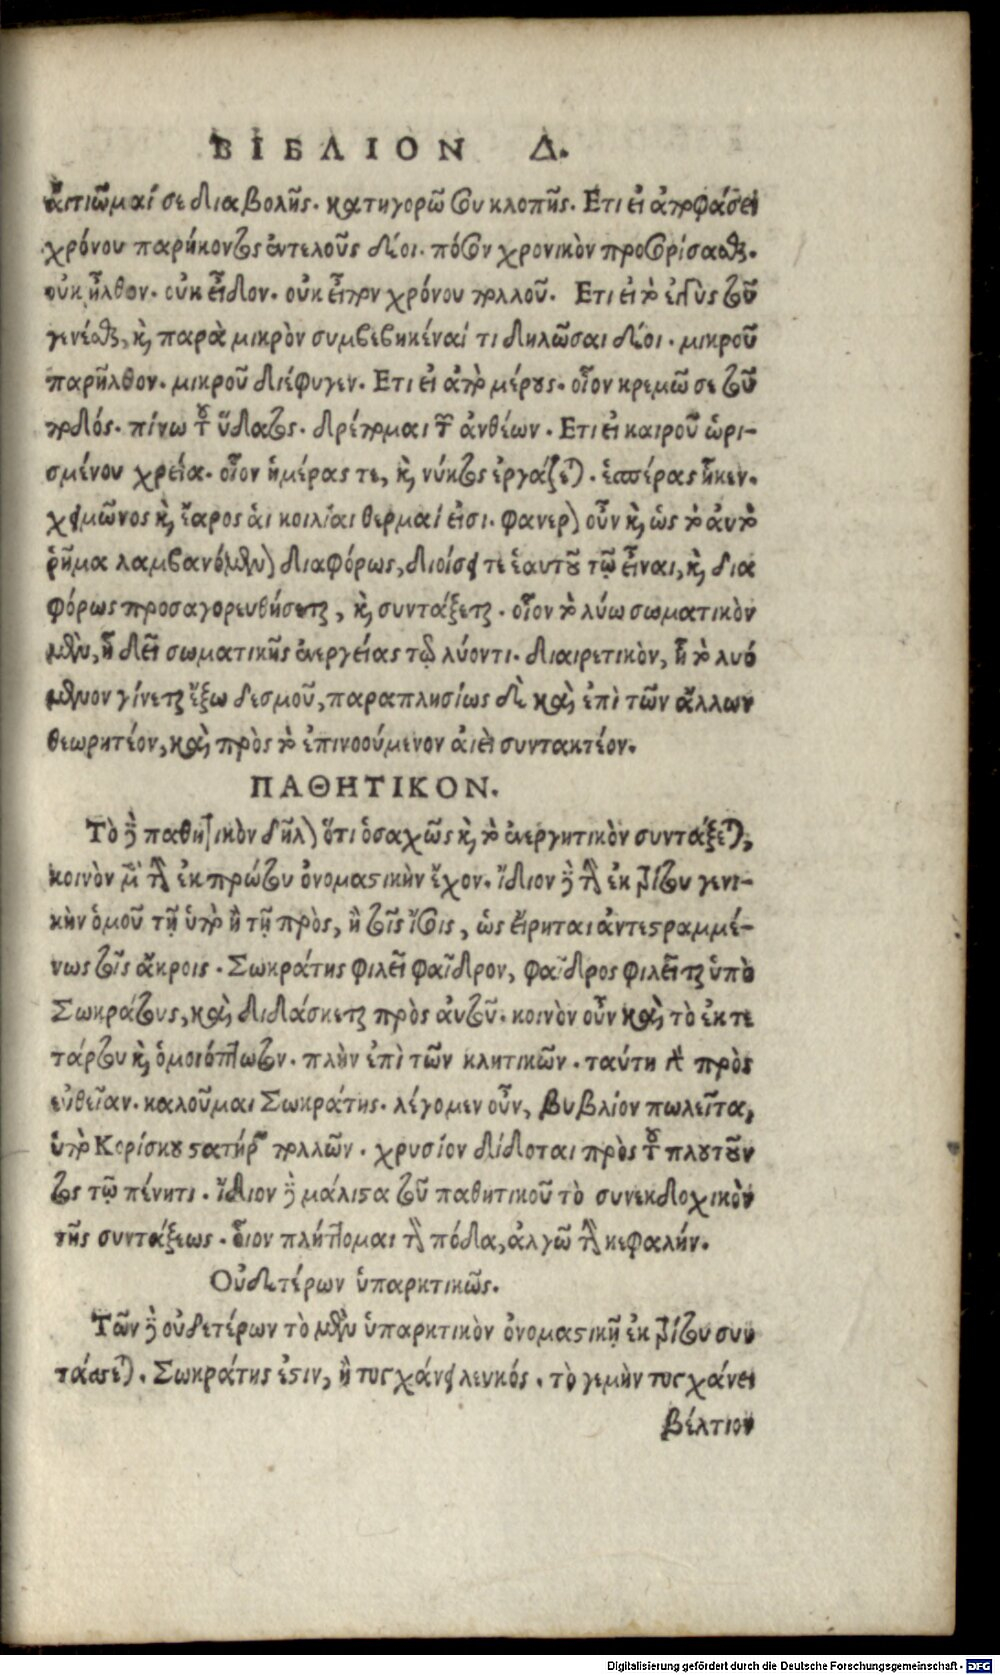 ΒΙΒΛΙΟΝ Δ.
αἰτιῶμαί σε διαβολῆς. κατηγορῶ σου κλοπῆς. Ετι εἰ ἀποφάσει
χρόνου παρήκοντος ἐντελοῦς δέοι. πόσον χρονικὸν προσορίσασθαι.
οὐκ ἦλθον. οὐκ εἶδον. οὐκ εἶπον χρόνου πολλοῦ. Ετι εἰ τὸ ἐγγὺς τοῦ
γενέσθαι, καὶ παρὰ μικρὸν συμβεβηκέναί τι δηλῶσαι δέοι. μικροῦ
παρῆλθον. μικροῦ διέφυγεν. Ετι εἰ ἀπὸ μέρους. οἷον κρεμῶ σε τοῦ
ποδός. πίνω τοῦ ὕδατος. δρέπομαι τῶν ἀνθέων. Ετι εἰ καιροῦ ὡρι-
σμένου χρεία. οἷον ἡμέρας τε, καὶ νύκτος ἐργάζεται. ἑσπέρας ἧκεν.
χειμῶνος καὶ ἔαρος ἁι κοιλίαι θερμαί εἰσι. φανερὸν οὖν καὶ ὡς τὸ ἀυτὸ
ῥῆμα λαμβανόμενον διαφόρως, διοίσει τε ἑαυτοῦ τῷ εἶναι, καὶ δια
φόρως προσαγορευθήσεται, καὶ συντάξεται. οἷον τὸ λύω σωματικὸν
μὲν, ἢ δεῖ σωματικῆς ἐνεργείας τῷ λύοντι. διαιρετικὸν, ἢ τὸ λυό
μενον γίνεται ἔξω δεσμοῦ, παραπλησίως δὲ καὶ ἐπὶ τῶν ἄλλων
θεωρητέον, καὶ πρὸς τὸ ἐπινοούμενον ἀιεὶ συντακτέον.
ΠΑΘΗΤΙΚΟΝ.
Τὸ δὲ παθητικὸν δῆλον ὅτι ὁσαχῶς καὶ τὸ ἐνεργητικὸν συντάξεται,
κοινὸν μὲν τὴν ἐκ πρώτου ὀνομαστικὴν ἔχον. ἴδιον δὲ τὴν ἐκ τρίτου γενι-
κὴν ὁμοῦ τῇ ὑπὸ ἢ τῇ πρὸς, ἢ τοῖς ἴσοις, ὡς εἴρηται ἀντεστραμμέ-
νως τοῖς ἄκροις. Σωκράτης φιλεῖ φαῖδρον, φαῖδρος φιλεῖται ὑπὸ
Σωκράτους, καὶ διδάσκεται πρὸς ἀυτοῦ. κοινὸν οὖν καὶ τὸ ἐκ τε
τάρτου καὶ ὁμοιόπτωτον. πλὴν ἐπὶ τῶν κλητικῶν. ταύτη γὰρ πρὸς
εὐθεῖαν. καλοῦμαι Σωκράτης. λέγομεν οὖν, βυβλίον πωλεῖται,
ὑπὸ Κορίσκου στατήρων πολλῶν. χρυσίον δίδοται πρὸς τοῦ πλουτοῦν
τος τῷ πένητι. ἴδιον δὲ μάλιστα τοῦ παθητικοῦ τὸ συνεκδοχικὸν
τῆς συντάξεως. ὅιον πλήττομαι τὴν πόδα, ἀλγῶ τὴν κεφαλήν.
Οὐδετέρων ὑπαρκτικῶς.
Τῶν δὲ οὐδετέρων τὸ μὲν ὑπαρκτικὸν ὀνομαστικῇ ἐκ τρίτου συν
τάσσεται. Σωκράτης ἐστιν, ἢ τυγχάνει λευκός. τὸ γεμὴν τυγχάνει
βέλτιον
Digitalisierung gefördert durch die Deutsche Forschungsgemeinschaft - DFG